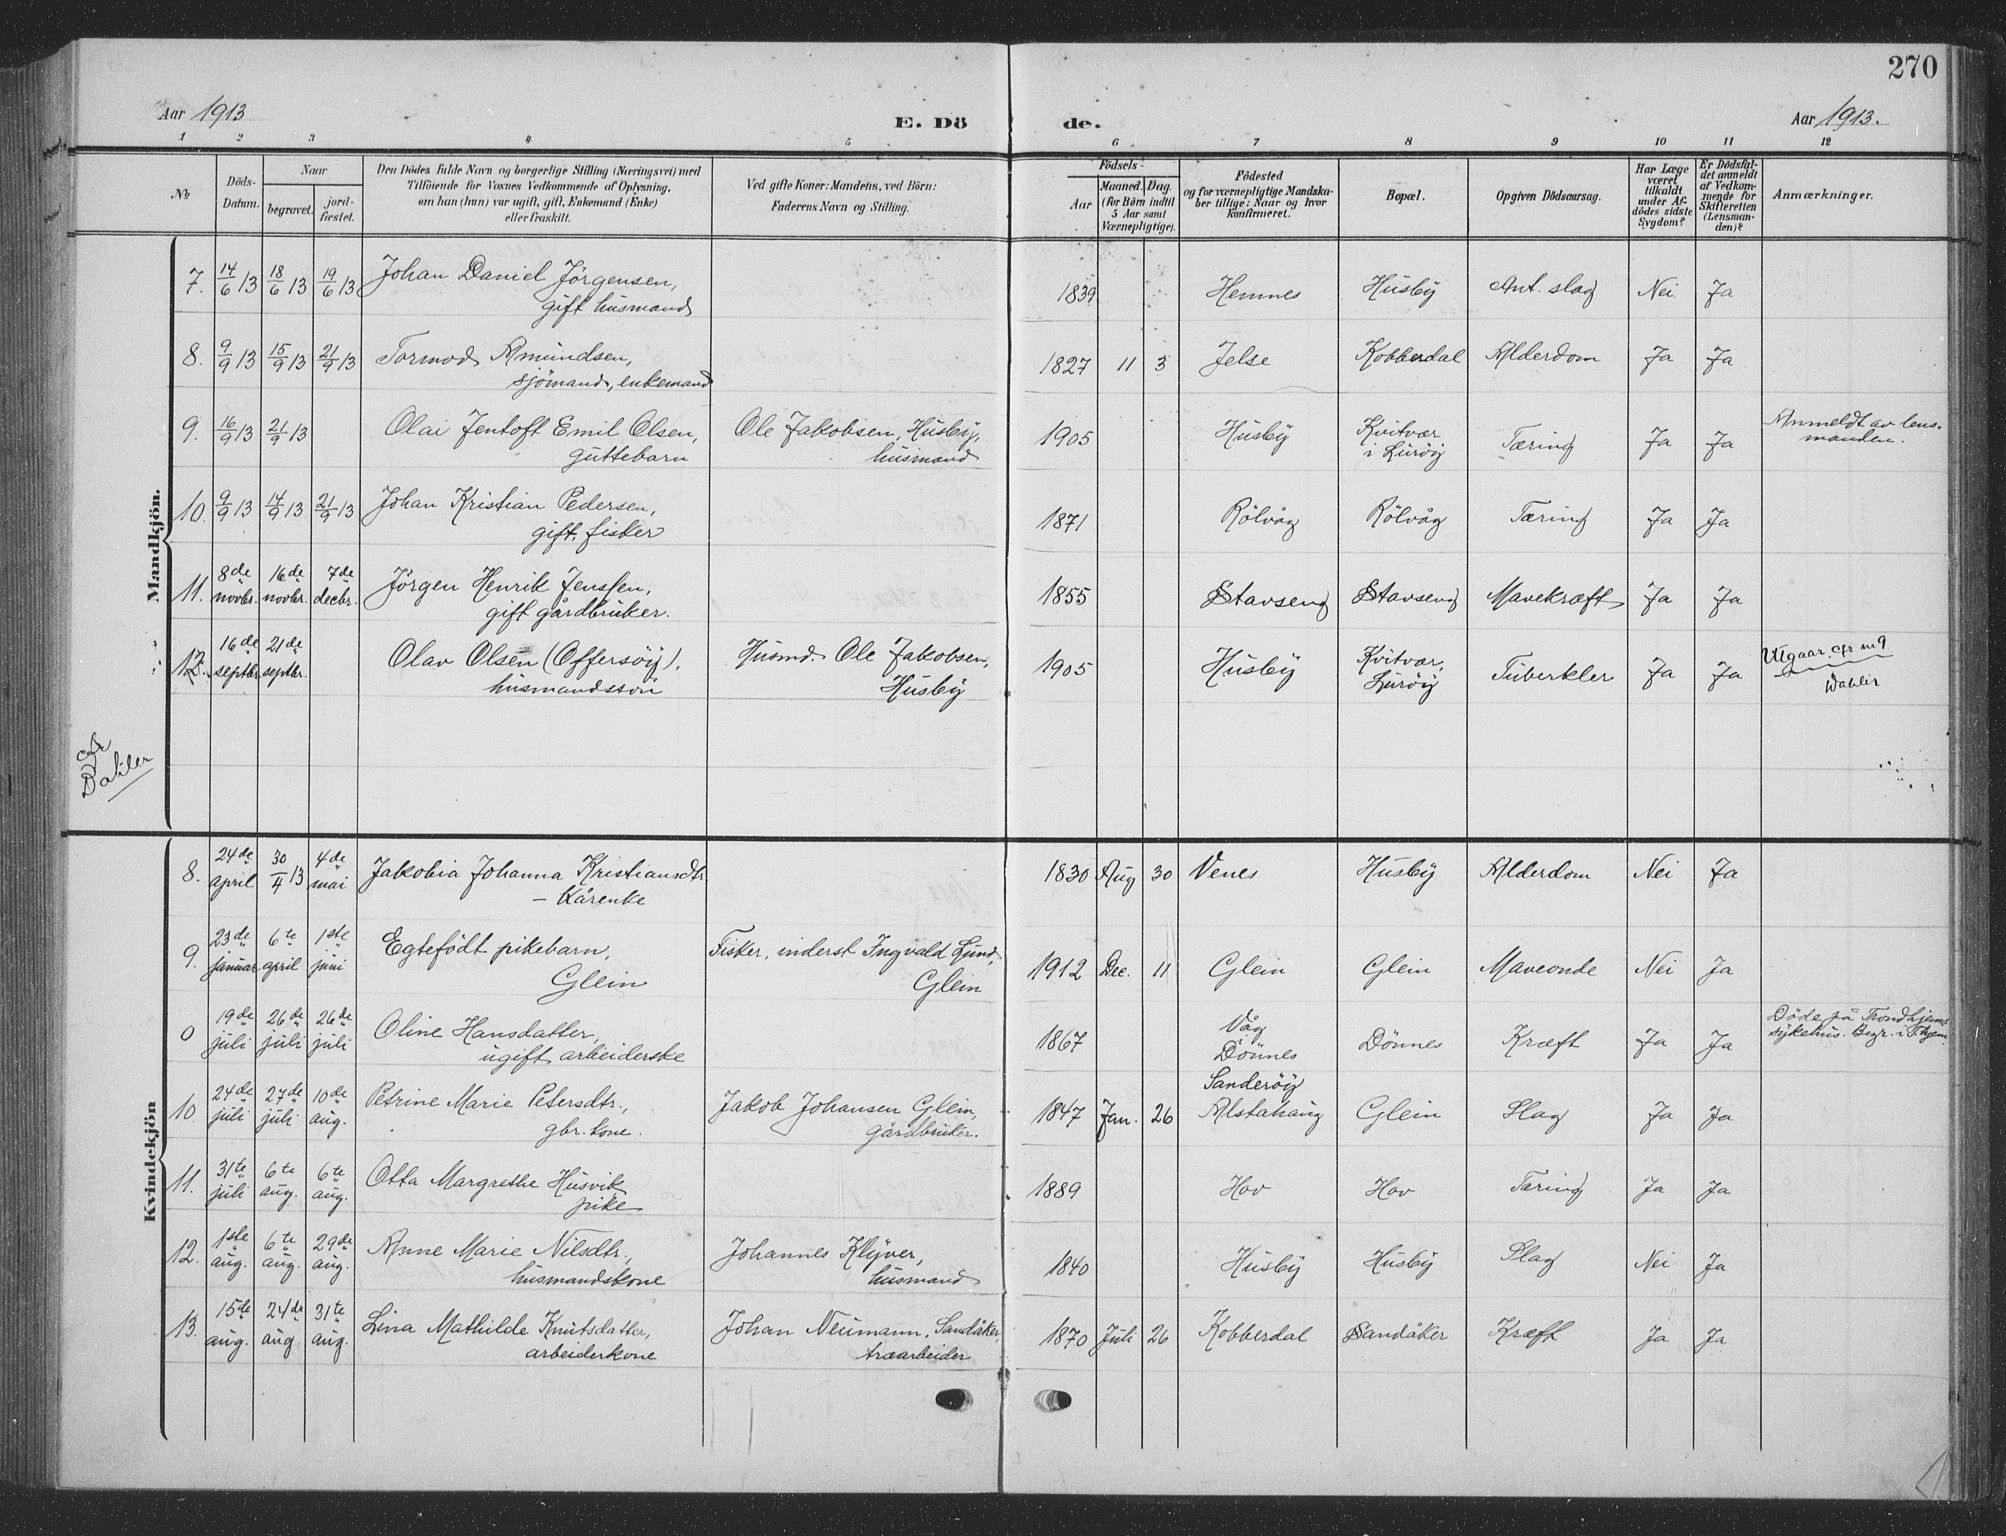 270
Aar 1913 E. Dö de. Aar 1913.
1 2 3 4 5 6 7 8 9 10 11 12
№
Döds-
Datum.
Naar
begravet.
jord-
fæstet.
Den Dödes fulde Navn og borgerlige Stilling (Næringsvei) med
Tilföiende for Voxnes Vedkommende af Oplysning,
om han (hun) var ugift, gift, Enkemand (Enke)
eller fraskilt.
Ved gifte Koner: Mandens, ved Börn:
Faderens Navn og Stilling.
Födsels-
Aar
Maaned. Dag.
(for Börn indtil
5 Aar samt
Værnepligtige).
Födested
og for værnepligtige Mandska-
ber tillige: Naar og hvor
konfirmeret.
Bopæl.
Opgiven Dödsaarsag.
Har Læge
været
tilkaldt
under Af-
dödes sidste
Sygdom?
Er Dödsfal-
det anmeldt
af Vedkom-
mende for
Skifteretten
(Lensman-
den)?
Anmærkninger.
Mandkjön.
7. 14/6 13 18/6 13 19/6 13 Johan Daniel Jörgensen, 1839 Hemnes Husby Ant. slag Nei Ja
gift husmand
8. 9/9 13 15/9 13 21/9 13 Tormod Amundsen, 1827 11 3 Jelse Kobberdal Alderdom Ja Ja
sjömand, enkemand
9. 16/9 13 21/9 13 Olai Jentoft Emil Olsen, Ole Jakobsen, Husby, 1905 Husby Kvitvær Tæring Ja Ja Anmeldt av lens-
guttebarn husmand i Luröy manden.
10. 9/9 13 14/9 13 21/9 13 Johan Kristian Pedersen, 1871 Rölvåg Rölvåg Tæring Ja Ja
gift, fisker
11. 8de novbr. 16de novbr. 7de decbr. Jörgen Henrik Jenssen, 1855 Stavseng Stavseng Mavekræft Ja Ja
gift gårdbruker.
12. 16de septbr. 21de septbr. Olav Olsen (Offersöy), Husmd. Ole Jakobsen, 1905 Husby Kvitvær, Tuberkler Ja Ja Utgaar. cfr nr 9
husmandssön Husby Luröy Dahler
cfr
Dahler
Kvindekjön
8. 24de april 30/4 13 4de mai Jakobia Johanna Kristiansdtr. 1830 Aug 30 Venes Husby Alderdom Nei Ja
– kårenke
9. 23de januar 6te april 1ste juni Egtefödt pikebarn, Fisker, inderst Ingvald Lund, 1912 Dec. 11 Glein Glein Maveonde Nei Ja
Glein Glein
0 19de juli 26de juli 26de juli Oline Hansdatter, 1867 Våg Dönnes Kræft Ja Ja Döde på Trondhjems
ugift arbeiderske Dönnes sykehus. Begr. i T.hjem
10. 24de juli 27de juli 10de aug. Petrine Marie Petersdtr., Jakob Johansen Glein, 1847 Jan. 26 Sanderöy Alstahaug Glein Slag Ja Ja
gbr. kone. gårdbruker.
11. 31te juli 6te aug. 6te aug. Otta Margrethe Husvik 1889 Hov Hov Tæring Ja Ja
pike
12. 1ste aug. 6te aug. 29de aug. Anne Marie Nilsdtr., Johannes Klyver, 1840 Husby Husby Slag Nei Ja
husmandskone husmand
13. 15de aug. 24de aug. 31te aug. Lina Mathilde Knutsdatter, Johan Neumann, Sandåker, 1870 Juli 26 Kobberdal Sandåker Kræft Ja Ja
arbeiderkone træarbeider